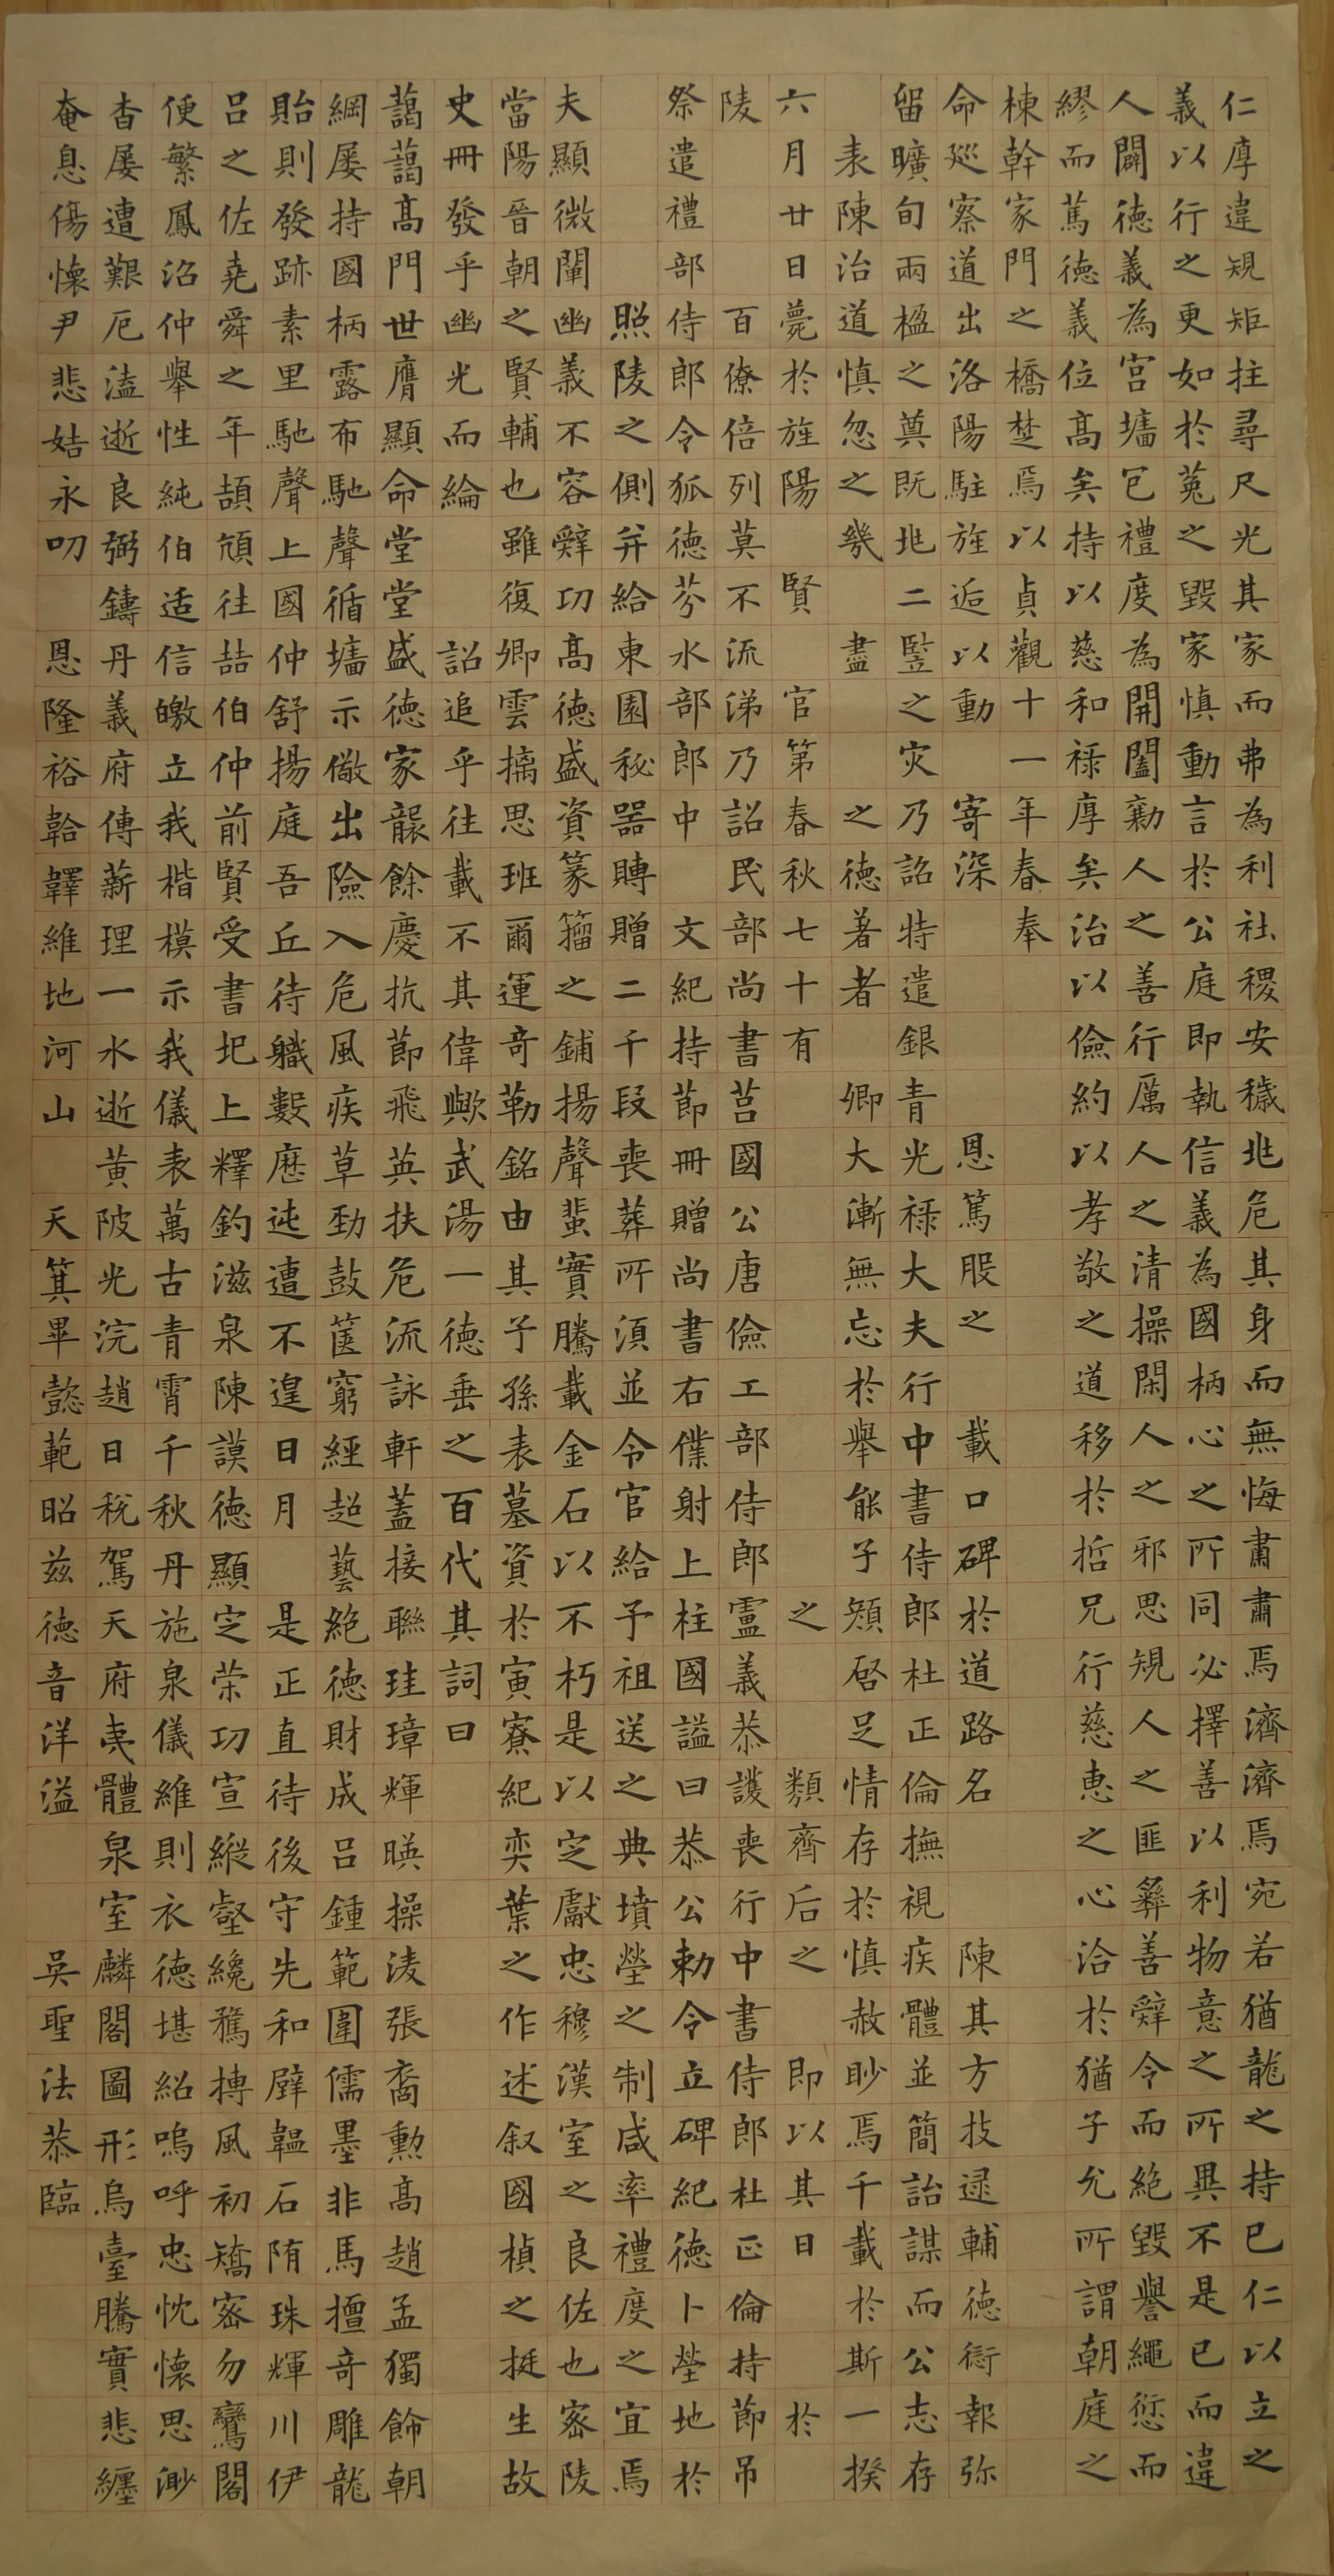 仁厚違規矩拄尋尺光其家而弗為利社稷安穢兆危其身而無悔肅肅焉濟濟焉宛若猶龍之持已仁以立之
義以行之更如於菟之毀家慎動言於公庭即執信義為國柄心之所同必擇善以利物意之所異不是已而違
人闢德義為宮墉包禮度為開闔勸人之善行厲人之清操閑人之邪思規人之匪彝善辭令而絕毀譽繩愆而
繆而篤德義位高矣持以慈和祿厚矣治以儉約以孝敬之道移於哲兄行慈惠之心洽於猶子允所謂朝庭之
棟幹家門之橋楚焉以貞觀十一年春奉
命巡察道出洛陽駐旌逅以動寄深恩篤股之載口碑於道路名陳其方技逯輔德衍報弥
留曠旬兩楹之奠既兆二豎之灾乃詔特遣銀青光祿大夫行中書侍郎杜正倫撫視疾體並簡詒謀而公志存
表陳治道慎忽之幾盡之德著者卿大漸無忘於舉能子頖啓足情存於慎赦眇焉千載於斯一揆
六月廿日薨於旌陽賢官第春秋七十有之類齊后之即以其日於
陵百僚倍列莫不流涕乃詔民部尚書莒國公唐儉工部侍郎盧義恭護喪行中書侍郎杜正倫持節吊
祭遣禮部侍郎令狐德芬水部郎中文紀持節冊贈尚書右僕射上柱國謚曰恭公勅令立碑紀德卜塋地於
照陵之側并給東園秘器賻贈二千段喪葬所須並令官給予祖送之典墳塋之制咸率禮度之宜焉
夫顯微闡幽義不容辭功高德盛資篆籀之鋪揚聲蜚實騰載金石以不朽是以定獻忠穆漢室之良佐也密陵
當陽晉朝之賢輔也雖復卿雲摛思班爾運奇勒銘由其子孫表墓資於寅寮紀奕葉之作述叙國楨之挺生故
史冊發乎幽光而綸詔追乎往載不其偉歟武湯一德垂之百代其詞曰
藹藹高門世膺顯命堂堂盛德家龍餘慶抗節飛英扶危流詠軒蓋接聯珪璋輝暎操淩張裔勳高趙孟獨飾朝
綱屡持國柄露布馳聲循墉示儆出險入危風疾草勁鼓篋窮經超藝絕德財成呂鍾範圍儒墨非馬擅奇雕龍
貽則發跡素里馳聲上國仲舒揚庭吾丘待軄數歷迍邅不遑日月是正直待後守先和辟韞石隋珠輝川伊
呂之佐堯舜之年頡頏往喆伯仲前賢受書圯上釋釣滋泉陳謨德顯定荣功宣縱壑纔騖摶風初矯密勿鸞閣
便繁鳳沼仲舉性純伯适信皦立我楷模示我儀表萬古青霄千秋丹施泉儀維則衣德堪紹嗚呼忠忱懷思渺
杳屡遭艱厄溘逝良弼鑄丹義府傳薪理一水逝黃陂光浣趙日稅駕天府夷體泉室麟閣圖形烏臺騰實悲纏
奄息傷懷尹悲姑永叨恩隆裕韐韡維地河山天箕畢懿範昭兹德音洋溢
吳聖法恭臨